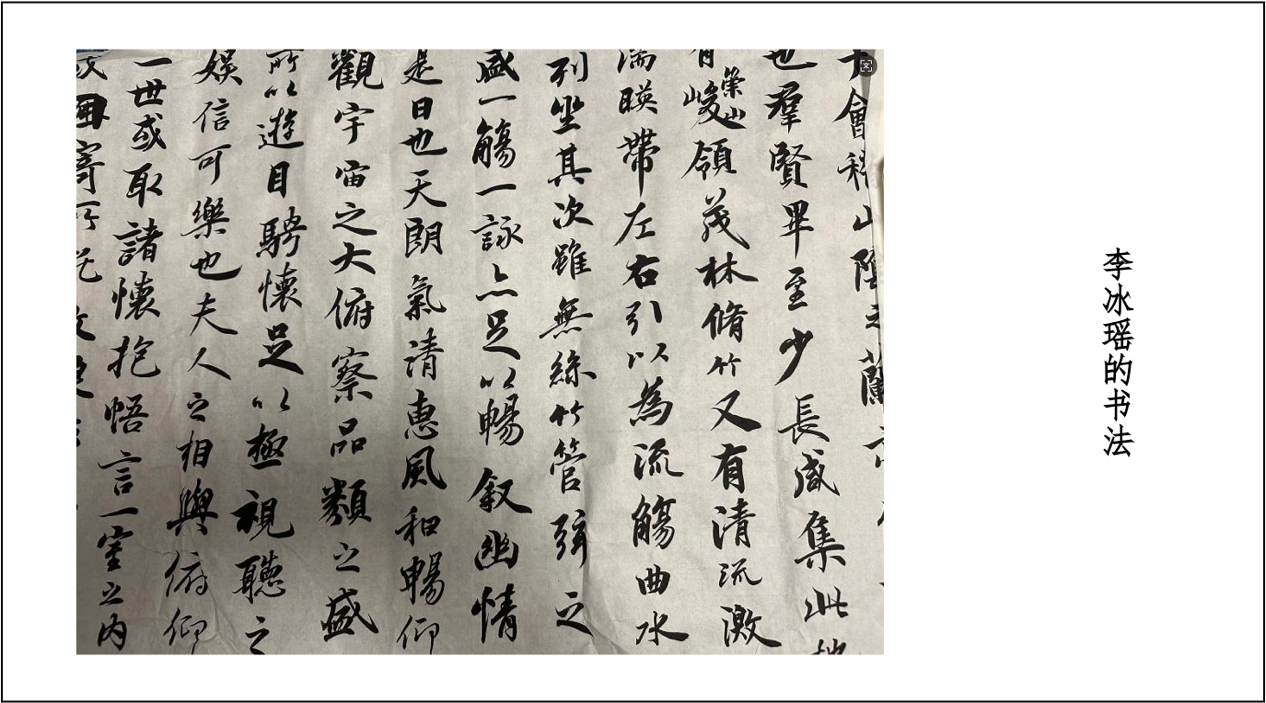 李冰瑶的书法
會稽山陰之蘭
也羣賢畢至少長咸集此地
有崇山峻領茂林脩竹又有清流激
湍暎帶左右引以為流觴曲水
列坐其次雖無絲竹管弦之
盛一觴一詠亦足以暢叙幽情
是日也天朗氣清惠風和暢仰
觀宇宙之大俯察品類之盛
所以遊目騁懷足以極視聽之
娱信可樂也夫人之相與俯仰
一世或取諸懷抱悟言一室之内
因寄所託